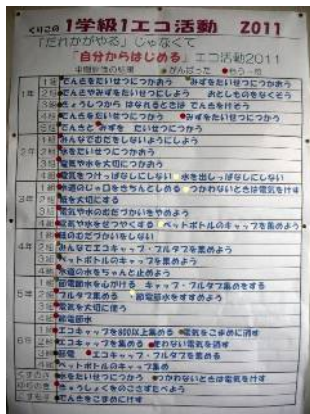 くりこの 1学級1エコ活動 2011
「だれかがやる」じゃなくて
「自分からはじめる」エコ活動2011
がんばった もう一歩
1年
1組 でんきをたいせつにつかおう みずをたいせつにつかおう
2組 でんきやみずをたいせつにしよう おとしものをなくそう
3組 きょうしつから はなれるときは でんきをけそう
4組 でんきをたいせつにつかおう みずをたいせつにつかおう
5組 でんきと みずを たいせつにつかおう
2年
1組 みんなでむだをしないようにしよう
2組 水をたいせつにつかおう
3組 電気や水を大切につかおう
4組 電気をつけっぱなしにしない 水を出しっぱなしにしない
3年
1組 水道のじゃ口をきちんとしめる つかわないときは電気をけす
2組 紙を大切にする
3組 電気や水のむだづかいをやめよう
4組 電気や水をせつやくする ペットボトルのキャップを集めよう
4年
1組 紙のむだづかいをしない
2組 みんなでエコキャップ・プルタブを集めよう
3組 ペットボトルのキャップを集めよう
4組 水道の水をちゃんと止めよう
5年
1組 節電節水を心がける キャップ・プルタブ集めをする
2組 プルタブ集める 節電節水をすすめよう
3組 電気を大切に使う
4組 節電節水
6年
1組 エコキャップを800以上集める 電気をこまめに消す
2組 エコキャップを集める 使わない電気を消す
3組 節電 エコキャップ・プルタブを集める
4組 ペットボトルのキャップ集め
水をたいせつにつかう つかわないときは電気をけす
きゅうしょくをのこさずたべよう
でんきをこまめにけす